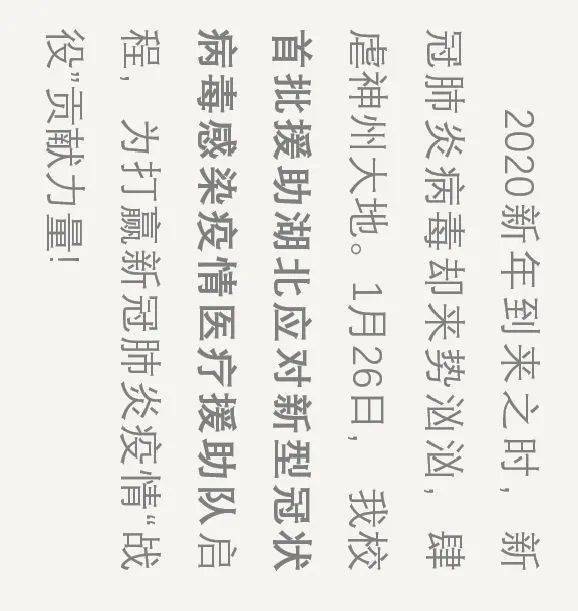 2020新年到来之时，新
冠肺炎病毒却来势汹汹，肆
虐神州大地。1月26日，我校
首批援助湖北应对新型冠状
病毒感染疫情医疗援助队启
程，为打赢新冠肺炎疫情“战
役”贡献力量!